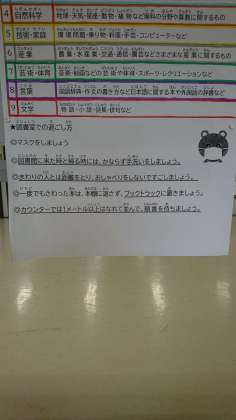 4 自然科学 地球・天気・星座・動物・植物など理科の分野や算数に関するもの
5 技術・家庭 環境問題・乗り物・料理・手芸・コンピューターなど
6 産業 農業・水産業・交通・通信・園芸などさまざまな産業に関するもの
7 芸術・体育 音楽・絵画などの芸術や体育・スポーツ・レクリエーションなど
8 言葉 国語辞典・作文の書き方など日本語に関する本や外国語の辞書など
9 文学 物語・小説・詩集・俳句など
★図書室での過ごし方
◎マスクをしましょう
◎図書館に来た時と帰る時には、かならず手洗いをしましょう。
◎まわりの人とは距離をとり、おしゃべりをしないですごしましょう。
◎一度でもさわった本は、本棚に返さず、ブックトラックに置きましょう。
◎カウンターでは1メートル以上はなれて並んで、順番を待ちましょう。